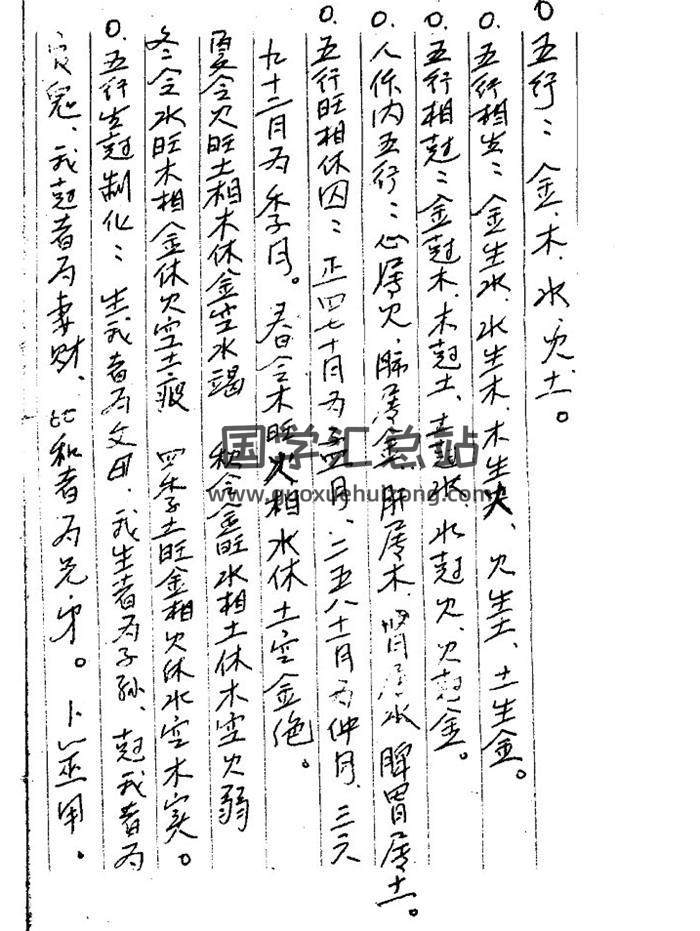 0 五行：金.木.水.火.土。
0. 五行相生：金生水.水生木.木生火、火生土、土生金。
0. 五行相尅：金尅木.木尅土、土尅水.水尅火、火尅金。
0. 人体内五行：心属火.肺属金.肝属木.肾属水.脾胃属土。
0. 五行旺相休囚：正四七十月为孟月、二五八十一月为仲月、三六
九十二月为季月。春令木旺火相水休土空金绝。
夏令火旺土相木休金空水竭 秋令金旺水相土休木空火弱
冬令水旺木相金休火空土 四季土旺金相火休水空木
0. 五行生尅制化：生我者为父母.我生者为子孙、尅我者为
鬼、我尅者为妻财、比和者为兄弟。卜筮用.
国学汇总站
www.guoxuehuizong.com